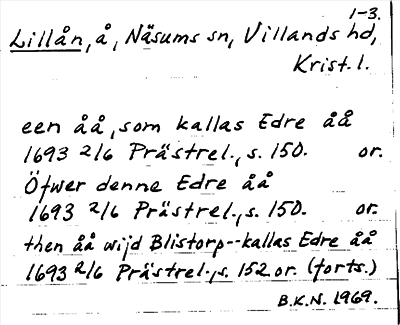 1-3.
Lillån, å, Näsums sn, Villands hd,
Krist. l.
een åå, som kallas Edre åå
1693 2/6 Prästrel., s. 150. or.
Öfwer denne Edre åå
1693 2/6 Prästrel., s. 150. or.
then åå wijd Blistorp--kallas Edre åå
1693 2/6 Prästrel., s. 152 or. (forts.)
B.K.N. 1969.